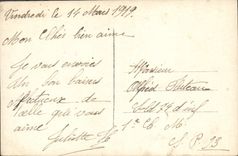 Vendredi le 14 Mars 1919.
Mon Chéri bien aimé
Je vous envoies
Un bon baiser
Affectueux de
celle qui vous
aime
Juliette
Monsieur
Alfred
24 d'inf
1re Cie M
S P 23